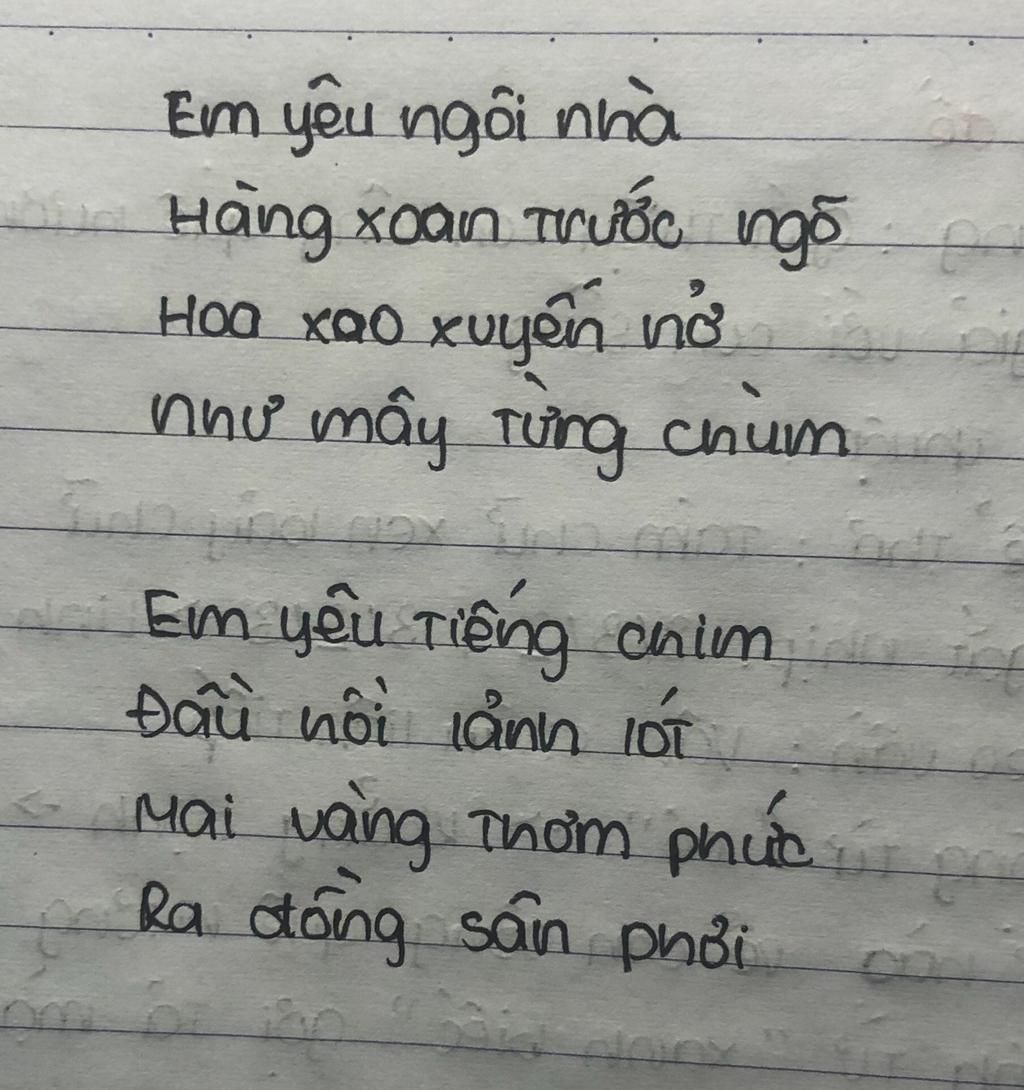 Em yêu ngôi nhà
Hàng xoan trước ngõ
Hoa xao xuyến nở
như mây từng chùm
Em yêu tiếng chim
Đầu hồi lảnh lót
Mai vàng thơm phức
Ra đồng sân phơi